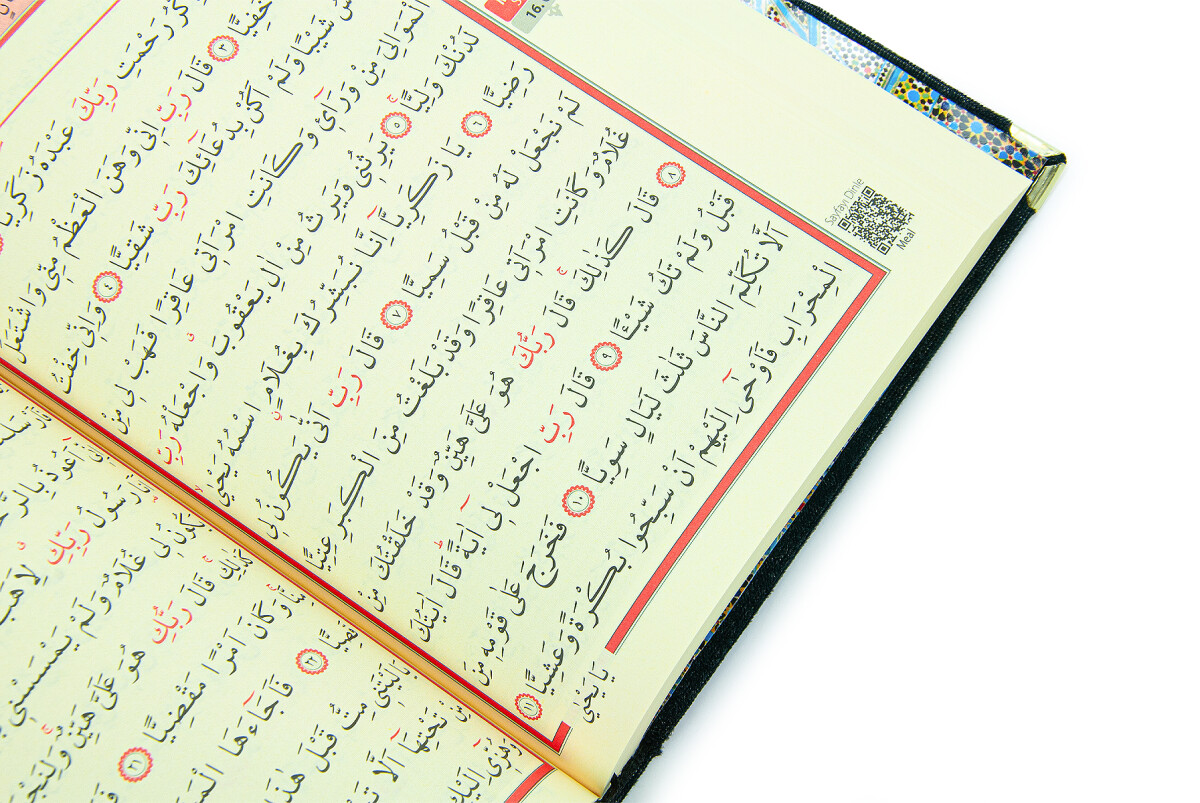 16.
Sayfayı Dinle
Meal
رَحْمَتِ رَبِّكَ عَبْدَهُ زَكَرِيَّا
خَفِيًّا ٣ قَالَ رَبِّ اِنّٖى وَهَنَ الْعَظْمُ مِنّٖى وَاشْتَعَلَ
شَيْبًا وَلَمْ اَكُنْ بِدُعَٓائِكَ رَبِّ شَقِيًّا ٤ وَاِنّٖى خِفْتُ
الْمَوَالِىَ مِنْ وَرَٓائٖ وَكَانَتِ امْرَاَتٖى عَاقِرًا فَهَبْ لٖى مِنْ
لَدُنْكَ وَلِيًّا ٥ يَرِثُنٖى وَيَرِثُ مِنْ اٰلِ يَعْقُوبَ وَاجْعَلْهُ رَبِّ
رَضِيًّا ٦ يَا زَكَرِيَّٓا اِنَّا نُبَشِّرُكَ بِغُلَامٍ اسْمُهُ يَحْيٰى
لَمْ نَجْعَلْ لَهُ مِنْ قَبْلُ سَمِيًّا ٧ قَالَ رَبِّ اَنّٰى يَكُونُ لٖى
غُلَامٌ وَكَانَتِ امْرَاَتٖى عَاقِرًا وَقَدْ بَلَغْتُ مِنَ الْكِبَرِ عِتِيًّا
٨ قَالَ كَذٰلِكَ قَالَ رَبُّكَ هُوَ عَلَىَّ هَيِّنٌ وَقَدْ خَلَقْتُكَ مِنْ
قَبْلُ وَلَمْ تَكُ شَيْـًٔا ٩ قَالَ رَبِّ اجْعَلْ لٖٓى اٰيَةً قَالَ اٰيَتُكَ
اَلَّا تُكَلِّمَ النَّاسَ ثَلٰثَ لَيَالٍ سَوِيًّا ١٠ فَخَرَجَ عَلٰى قَوْمِهٖ مِنَ
الْمِحْرَابِ فَاَوْحٰٓى اِلَيْهِمْ اَنْ سَبِّحُوا بُكْرَةً وَعَشِيًّا ١١
يَا يَحْيٰى
اَعُوذُ
رَسُولُ رَبِّكِ لِاَهَبَ
يَكُونُ لٖى غُلَامٌ وَلَمْ يَمْسَسْنٖى
كَذٰلِكِ قَالَ رَبُّكِ هُوَ عَلَىَّ هَيِّنٌ
وَكَانَ اَمْرًا مَقْضِيًّا ٢١
٢٢ فَاَجَٓاءَهَا
يَا لَيْتَنٖى مِتُّ قَبْلَ هٰذَا
تَحْتِهَٓا اَلَّا
وَهُزّٖٓى اِلَيْكِ